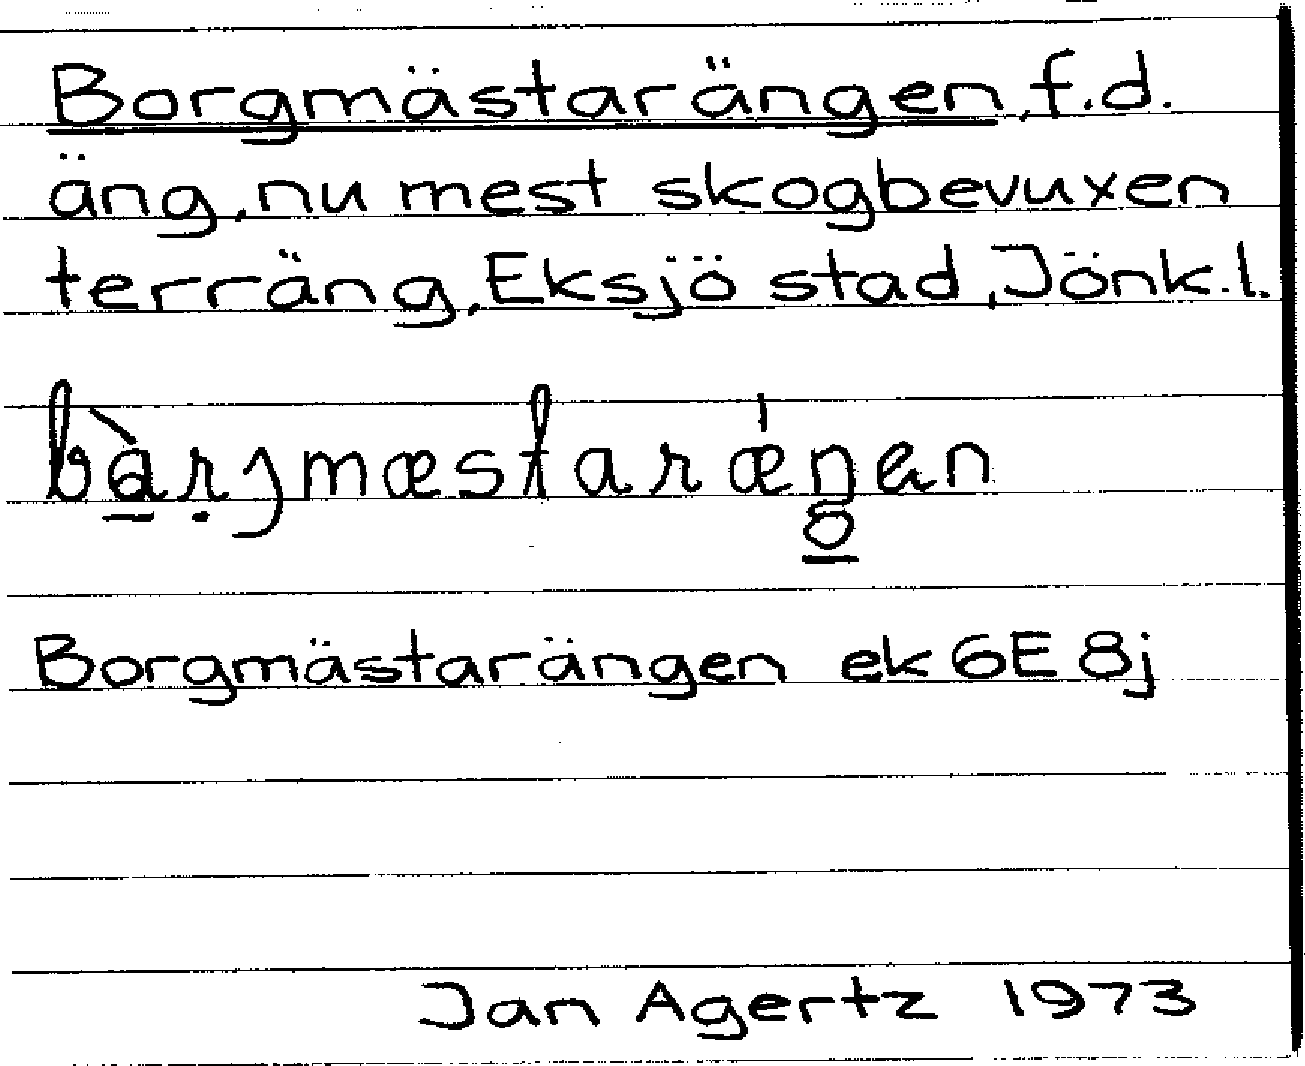 Borgmästarängen, f.d.
äng, nu mest skogbevuxen
terräng, Eksjö stad, Jönk.l.
bàrjmæstarǽŋen
Borgmästarängen ek 6E8j
Jan Agertz 1973